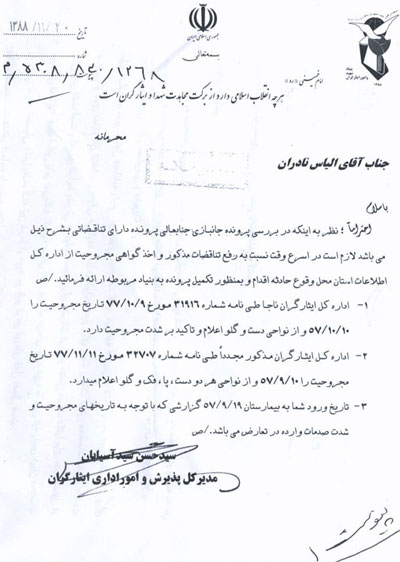 جمهوری اسلامی ایران
بسمه تعالی
تاریخ ۱۳۸۸/۱۱/۲۰
شماره
امام خمینی «ره»:
هرچه انقلاب اسلامی دارد از برکت مجاهدت شهدا و ایثارگران است
محرمانه
جناب آقای الیاس نادران
باسلام
احتراماً ؛ نظر به اینکه در بررسی پرونده جانبازی جنابعالی پرونده دارای تناقضاتی بشرح ذیل
می باشد لازم است در اسرع وقت نسبت به رفع تناقضات مذکور و اخذ گواهی مجروحیت از اداره کل
اطلاعات استان محل وقوع حادثه اقدام و بمنظور تکمیل پرونده به بنیاد مربوطه ارائه فرمائید./ص
۱- اداره کل ایثارگران ناجا طی نامه شماره ۳۱۹۱۶ مورخ ۷۷/۱۰/۹ تاریخ مجروحیت را
۵۷/۱۰/۱۰ و از نواحی دست و گلو اعلام و تاکید بر شدت مجروحیت دارد.
۲- اداره کل ایثارگران مذکور مجدداً طی نامه شماره ۳۲۷۰۷ مورخ ۷۷/۱۱/۱۱ تاریخ
مجروحیت را ۵۷/۹/۱۰ و از نواحی هر دو دست ، پا ، فک و گلو اعلام میدارد.
۳- تاریخ ورود شما به بیمارستان ۵۷/۹/۱۹ گزارشی که با توجه به تاریخهای مجروحیت و
شدت صدمات وارده در تعارض می باشد./ص
سیدحسن سیدآسیابان
مدیرکل پذیرش و اموراداری ایثارگران